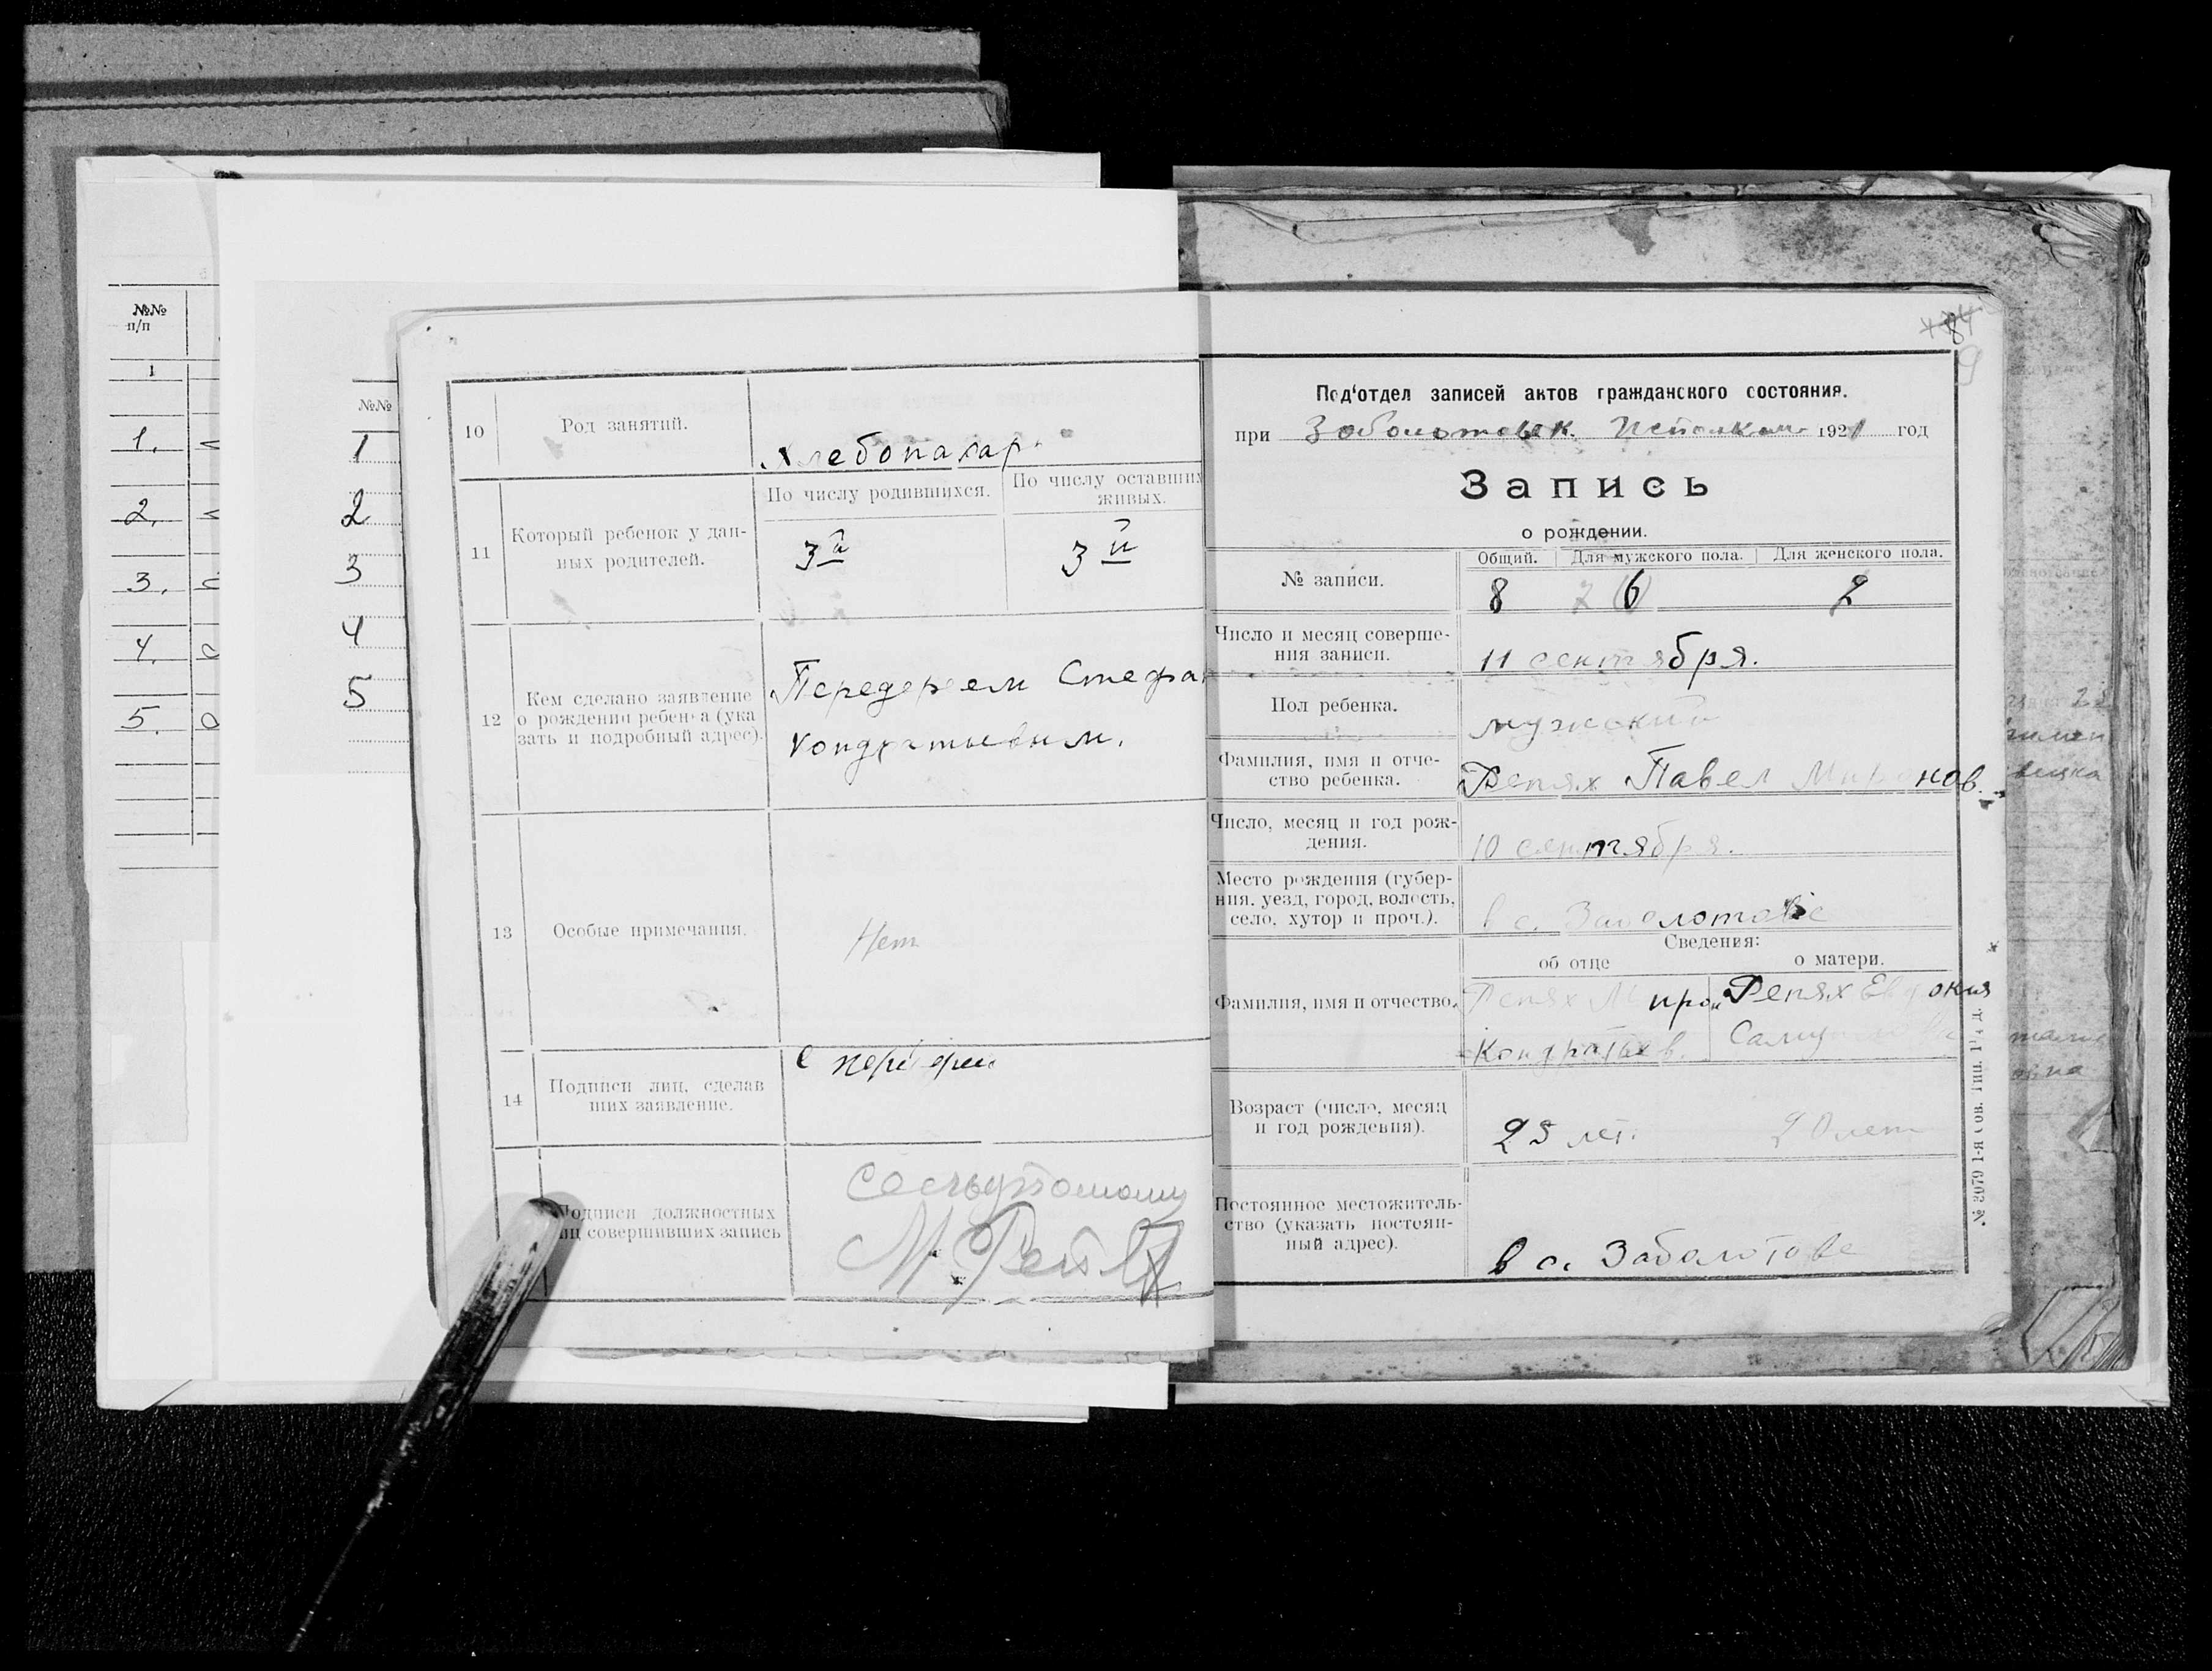 №№
п/п
1
1.
2.
3.
4.
5.
№№
1
2
3
4
5
10
Род занятий.
Хлебопахар
11
Который ребенок у дан-
ных родителей.
По числу родившихся.
По числу оставших
живых.
3й
3й
12
Кем сделано заявление
о рождении ребенка (ука
зать и подробный адрес).
Передереем Стефа
Кондратьевым.
13
Особые примечания.
Нет
14
Подписи лиц, сделав
ших заявление.
С
Подписи должностных
лиц совершивших запись
М. Репях
8
9
Под'отдел записей актов гражданского состояния.
при Заболотовск. Исполком 1921 год
Запись
о рождении.
№ записи.
Общий. Для мужского пола. Для женского пола.
8 6 2
Число и месяц соверше-
ния записи.
11 сентября.
Пол ребенка.
мужский
Фамилия, имя и отче-
ство ребенка.
Репях Павел Миронов.
Число, месяц и год рож-
дения.
10 сентября.
Место рождения (губер-
ния. уезд, город, волость,
село. хутор и проч.).
в с. Заболотове
Сведения:
об отце о матери.
Фамилия, имя и отчество.
Репях Мирон Репях Евдокия
Кондратьев.
Возраст (число, месяц
и год рождения).
25 лет. 20 лет
Постоянное местожитель-
ство (указать постоян-
ный адрес).
в с. Заболотове